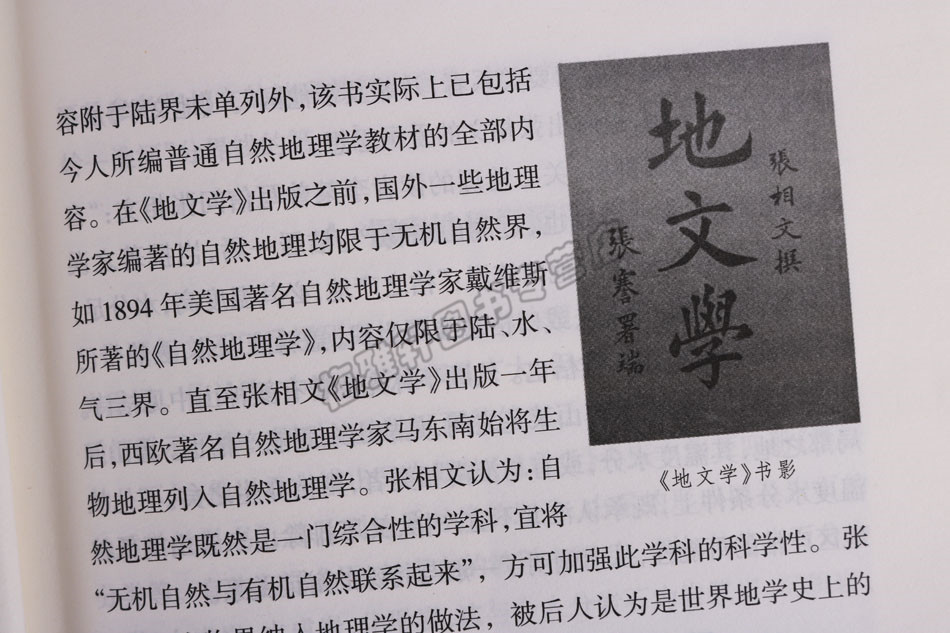 容附于陆界未单列外，该书实际上已包括
今人所编普通自然地理学教材的全部内
容。在《地文学》出版之前，国外一些地理
学家编著的自然地理均限于无机自然界，
如1894年美国著名自然地理学家戴维斯
所著的《自然地理学》，内容仅限于陆、水、
气三界。直至张相文《地文学》出版一年
后，西欧著名自然地理学家马东南始将生
物地理列入自然地理学。张相文认为：自
然地理学既然是一门综合性的学科，宜将
“无机自然与有机自然联系起来”，方可加强此学科的科学性。张
地理学的做法，被后人认为是世界地学史上的
張相文撰
地文學
張謇署瑞
《地文学》书影